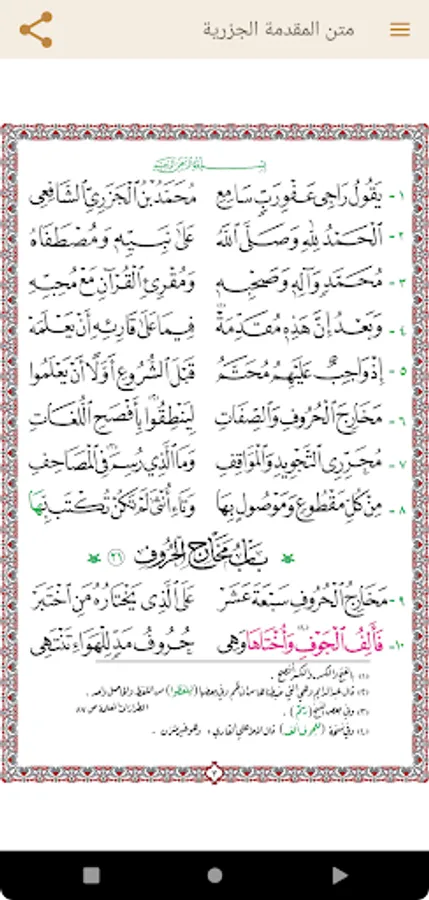 متن المقدمة الجزرية
بسم الله الرحمن الرحيم
١ - يَقُولُ رَاجِي عَفْوِ رَبٍّ سَامِعِ مُحَمَّدُ بْنُ الْجَزَرِيِّ الشَّافِعِي
٢ - الْحَمْدُ لِلَّهِ وَصَلَّى اللَّهُ عَلَى نَبِيِّهِ وَمُصْطَفَاهُ
٣ - مُحَمَّدٍ وَآلِهِ وَصَحْبِهِ وَمُقْرِئِ الْقُرْآنِ مَعْ مُحِبِّهِ
٤ - وَبَعْدُ إِنَّ هَذِهِ مُقَدِّمَةْ فِيمَا عَلَى قَارِئِهِ أَنْ يَعْلَمَهْ
٥ - إِذْ وَاجِبٌ عَلَيْهِمُ مُحَتَّمُ قَبْلَ الشُّرُوعِ أَوَّلًا أَنْ يَعْلَمُوا
٦ - مَخَارِجَ الْحُرُوفِ وَالصِّفَاتِ لِيَنْطِقُوا بِأَفْصَحِ اللُّغَاتِ
٧ - مُحَرِّرِي التَّجْوِيدِ وَالْمَوَاقِفِ وَمَا الَّذِي رُسِمَ فِي الْمَصَاحِفِ
٨ - مِنْ كُلِّ مَقْطُوعٍ وَمَوْصُولٍ بِهَا وَتَاءِ أُنْثَى لَمْ تَكُنْ تُكْتَبْ بِهَا
بَابُ مَخَارِجِ الْحُرُوفِ
٩ - مَخَارِجُ الْحُرُوفِ سَبْعَةَ عَشَرْ عَلَى الَّذِي يَخْتَارُهُ مَنِ اخْتَبَرْ
١٠ - فَأَلِفُ الْجَوْفِ وَأُخْتَاهَا وَهِي حُرُوفُ مَدٍّ لِلْهَوَاءِ تَنْتَهِي
(٣) وفي بعض النسخ
(٤) وفي نسخة
٢